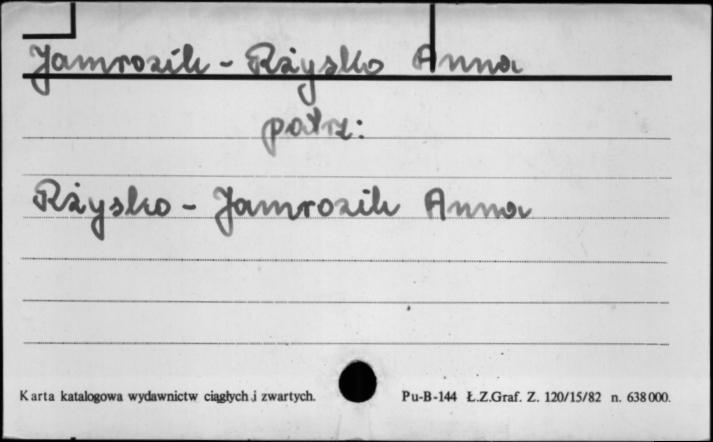 Jamrozik - Rżysko Anna
patrz:
Rżysko - Jamrozik Anna
Karta katalogowa wydawnictw ciągłych i zwartych. Pu-B-144 Ł.Z.Graf. Z. 120/15/82 n. 638000.